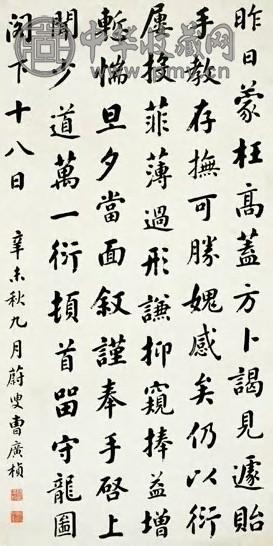 昨日蒙枉高蓋方卜謁見遽貽
手教存撫可勝媿感矣仍以衍
屢投菲薄過形謙抑窺捧益增
慙惴旦夕當面叙謹奉手啓上
聞少道萬一衍頓首留守龍圖
閣下十八日
辛未秋九月蔚叟曹廣楨
中华收藏网